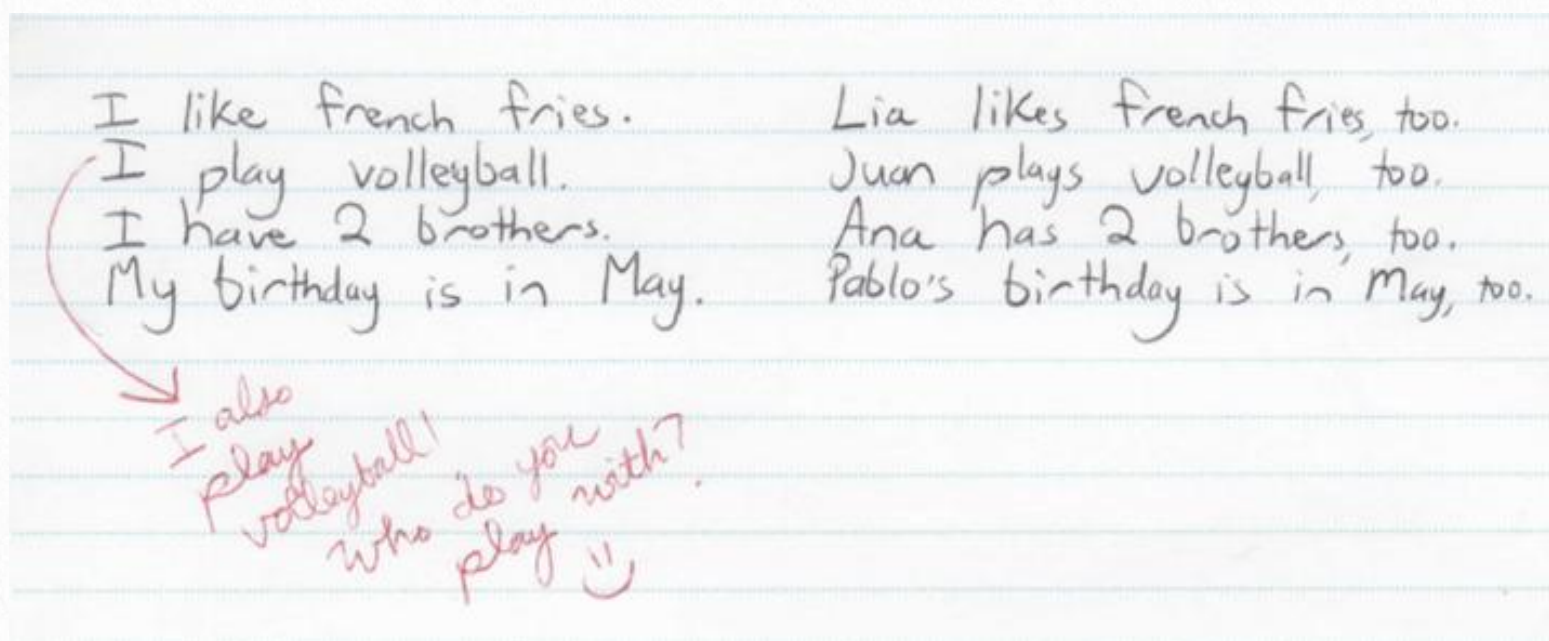 I like french fries.
I play volleyball.
I have 2 brothers.
My birthday is in May.
Lia likes french fries, too.
Juan plays volleyball, too.
Ana has 2 brothers, too.
Pablo's birthday is in May, too.
I also
play
volleyball!
who do you
play with?